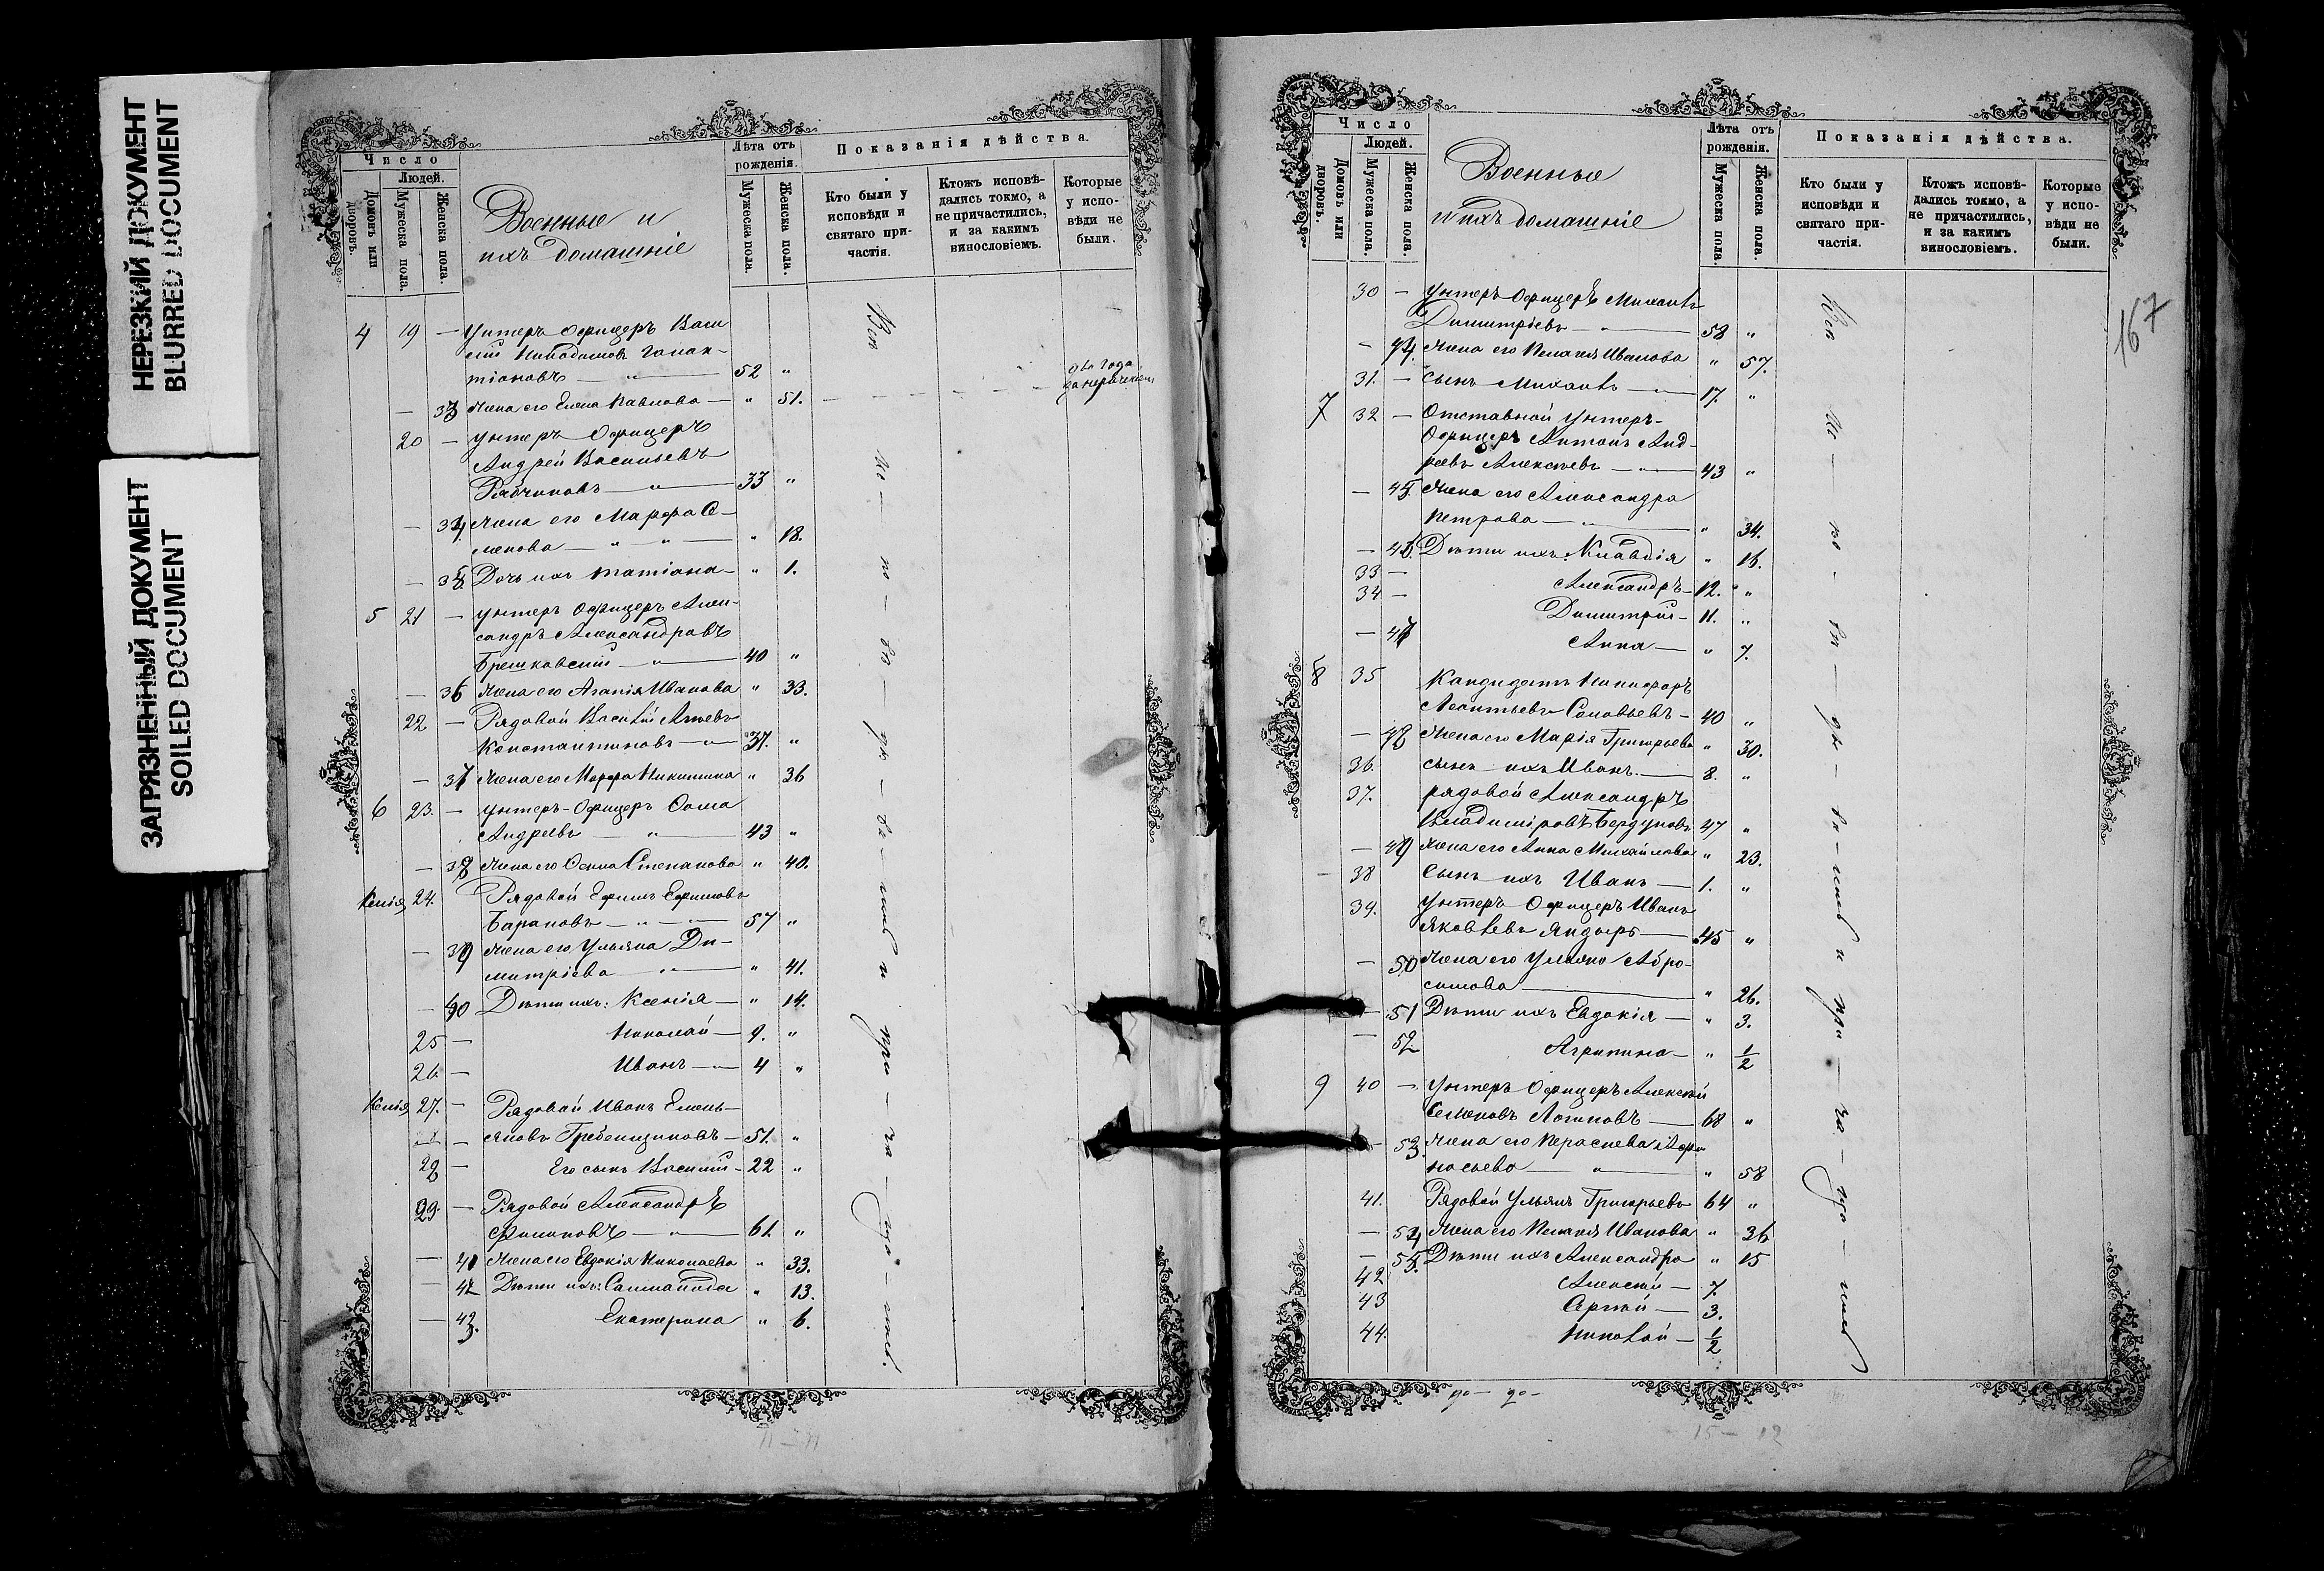 НЕРЕЗКИЙ ДОКУМЕНТ
BLURRED DOCUMENT
ЗАГРЯЗНЕННЫЙ ДОКУМЕНТ
SOILED DOCUMENT
Число
Людей.
Домовъ или дворовъ.
Мужеска пола.
Женска пола.
Военные и
ихъ домашніе
Лѣта отъ рожденія.
Мужеска пола.
Женска пола.
Показанія дѣйства.
Кто были у исповѣди и святаго причастія.
Ктожъ исповѣдались токмо, а не причастились, и за какимъ винословіемъ.
Которые у исповѣди не были.
4 19 — Унтеръ Офицеръ Васи
лій Никодимовъ Галак-
тіоновъ — " — 52 "
два года
— 33 Жена его Елена Павлова — " 51.
20 — Унтеръ Офицеръ
Андрей Васильевъ
Рябчиковъ — " — 33 "
— 34 Жена его Марфа С-
менова — " — " — " 18.
— 35 Дочь ихъ Татіана — " 1.
5 21 — Унтеръ Офицеръ Алек-
сандръ Александровъ
Брешковскій — " — 40 "
— 36 Жена его Агапія Иванова " 33.
22 — Рядовой Василій
Константиновъ — " — 37. "
— 37 Жена его Марфа Никитина " 36
6 23. — Унтеръ-Офицеръ Фома
Андреевъ — " — 43 "
— 38 Жена его Степанова " 40.
Келія 24. Рядовой Ефимъ Ефимовъ
Барановъ — " — " — 57 "
— 39 Жена его Ульяна Ди-
митріева — " — " 41.
— 40 Дѣти ихъ: Ксенія — " 14.
25 — Николай — 9. "
26 — Иванъ — " — 4 "
Келія 27. — Рядовой Иванъ Емель-
яновъ Гребенщиковъ — 51. "
28 — Его сынъ Василій — 22 "
29. — Рядовой Александръ
Филиповъ — " — 61. "
— 41 Жена его Евдокія Николаева " 33.
— 42 Дѣти ихъ: " 13.
— 43. Екатерина " 6.
Всѣ
Число
Людей.
Домовъ или дворовъ.
Мужеска пола.
Женска пола.
Военные
и ихъ домашніе
Лѣта отъ рожденія.
Мужеска пола.
Женска пола.
Показанія дѣйства.
Кто были у исповѣди и святаго причастія.
Ктожъ исповѣдались токмо, а не причастились, и за какимъ винословіемъ.
Которые у исповѣди не были.
167
30 — Унтеръ Офицеръ Михаилъ
Димитріевъ — " — 58 "
— 44. Жена его Пелагея Иванова " 57.
31. — Сынъ Михаилъ — " — 17. "
7 32 — Отставной Унтеръ-
Офицеръ Антонъ Анд-
реевъ Алексѣевъ — " — 43 "
— 45. Жена его Александра
Петрова — " — " 34.
— 46. Дѣти ихъ Клавдія " 16.
33 — Александръ — 12. "
34 — Димитрій — 11. "
— 47 Анна — " 7.
8 35 Кандидатъ Никифоръ
Леонтьевъ Соловьевъ — 40 "
— 48 Жена его Марія Григорьева " 30.
36. Сынъ ихъ Иванъ. — 8. "
37. рядовой Александръ
Владиміровъ 47 "
— 49 Жена его Анна Михайлова " 23.
38 Сынъ ихъ Иванъ — 1. "
39. Унтеръ Офицеръ Иванъ
Яковлевъ — 45 "
— 50 Жена его Ульяна Абро-
симова — " 26.
— 51 Дѣти ихъ Евдокія — " 3.
— 52 Агрипина — " 1/2
9 40 — Унтеръ Офицеръ Алексѣй
Семеновъ Логиновъ — 68 "
— 53. Жена его Параскева Афа
насьева — " — " 58
41. Рядовой Ульянъ Григорьевъ 64 "
— 54 Жена его Пелагея Иванова " 36
— 55. Дѣти ихъ Александра " 15
42 Алексѣй — 7.
43 Сергѣй — 3.
44. Николай — 1/2
Всѣ
15 — 12